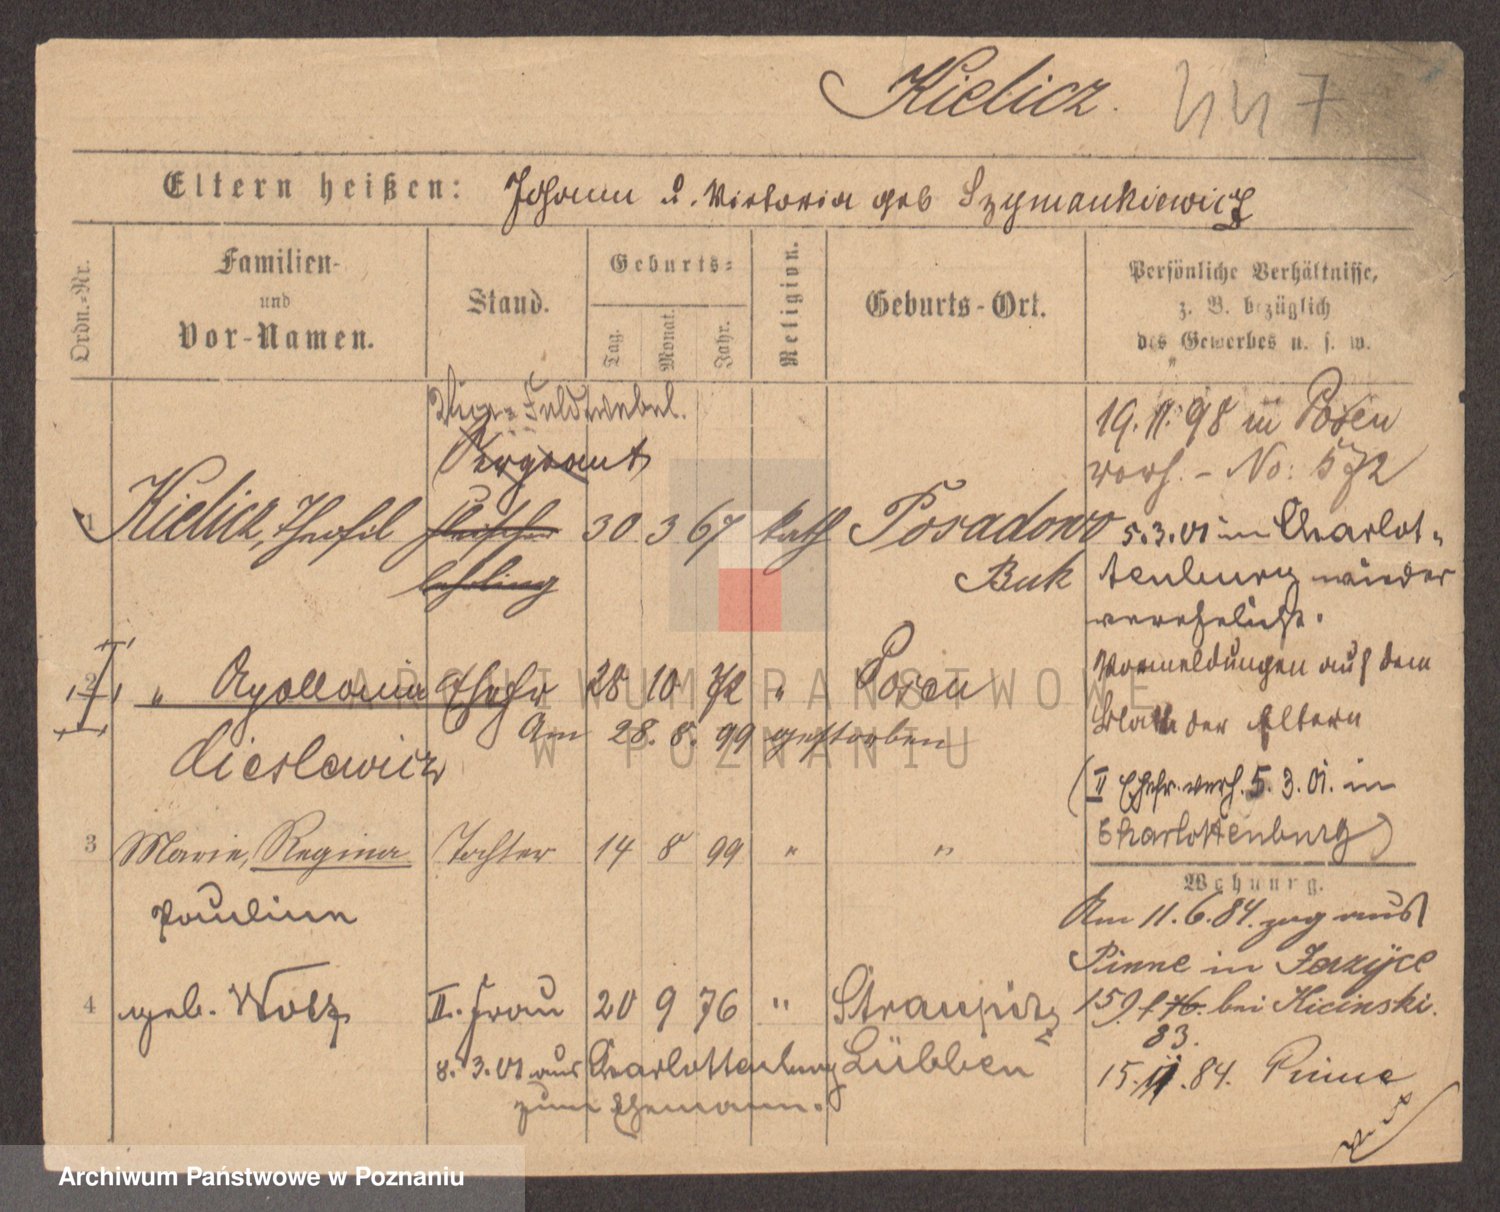 Kielicz.
447
Eltern heißen: Johann u. Victoria geb Szymankiewicz
Ordn.-Nr.
Familien-
und
Vor-Namen.
Stand.
Geburts-
Tag.
Monat.
Jahr.
Religion.
Geburts-Ort.
Persönliche Verhältnisse,
z. B. bezüglich
des Gewerbes u. s. w.
Vice-Feldwebel.
Sergeant
1 Kielicz, Theofil Fleischer 30 3 67 kath Posadowo
lehrling Buk
19. 11. 98 in Posen
verh. - No: 572
5.3.01 in Charlot-
tenburg wieder
verehelicht.
2 " Apollonia Ehefr 28 10 72 " Posen
Am 28. 8. 99 gestorben
Cieslewicz
Vormeldungen auf dem
Blatt der Eltern
(II Ehefr. verh. 5. 3. 01. in
Charlottenburg)
3 Marie, Regina Tochter 14 8 99 " "
Pauline
4 geb. Wolz II. Frau 20 9 76 " Straupitz
Lübben
8. 3. 01 aus Charlottenburg
zum Ehemann.
Wohnung.
Am 11. 6. 84. zog aus
Pinne in Jerzyce
159 f 76. bei Kicinski.
83.
15. 11. 84. Pinne
ARCHIWUM PAŃSTWOWE
W POZNANIU
Archiwum Państwowe w Poznaniu